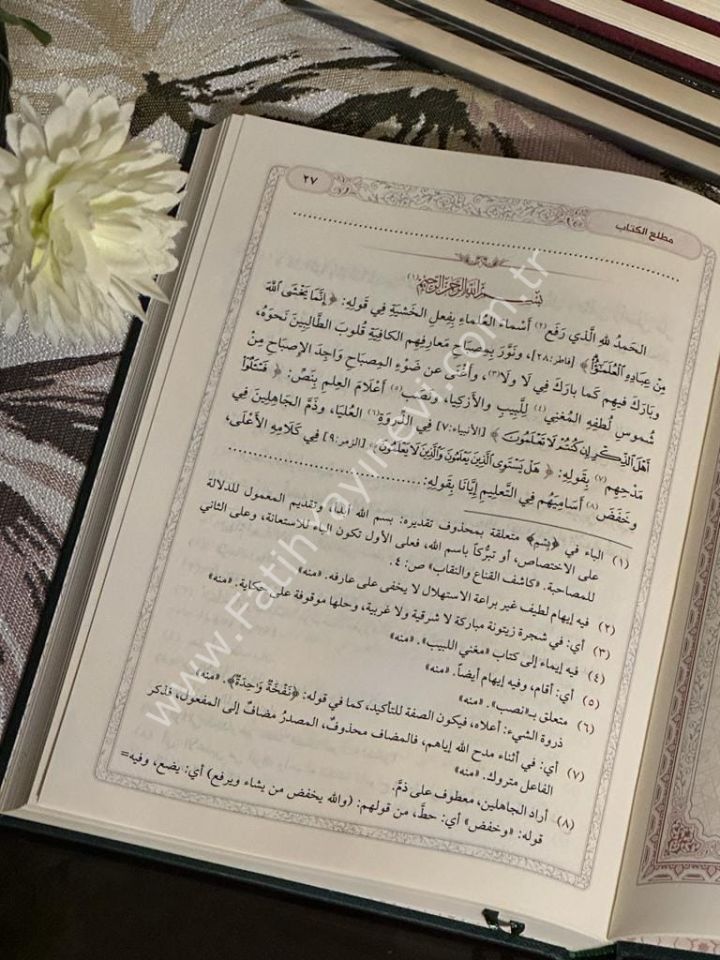 مطلع الكتاب
٢٧
بسم الله الرحمن الرحيم (١)
الحَمدُ للهِ الَّذي رَفَع (٢) أَسْماءَ العُلَماءِ بِفِعلِ الخَشْيَةِ في قَولِهِ: ﴿ إِنَّمَا يَخْشَى اللَّهَ
مِنْ عِبَادِهِ الْعُلَمَٰٓؤُا ﴾ [فاطر:٢٨]، ونَوَّرَ بِمِصباحِ مَعارِفِهِم الكافِيَةِ قُلوبَ الطَّالِبينَ نَحوَهُ،
وبَارَكَ فيهِم كَما بارَكَ في لَا ولَا (٣)، وأَغْنَى عن ضَوْءِ المِصباحِ وَاجِدَ الإِصباحِ مِنْ
شُموسِ لُطفِهِ المُغني (٤) لِلَّبيبِ والأَزكِياء، ونَصَب (٥) أَعْلَامَ العِلمِ بِنَصِّ: ﴿ فَسْـَٔلُوٓا
أَهْلَ الذِّكْرِ إِن كُنتُمْ لَا تَعْلَمُونَ ﴾ [الأنبياء:٧] في الذُّروَةِ (٦) العُليَا، وذَمَّ الجَاهِلينَ في
مَدْحِهم (٧) بِقَولِهِ: ﴿ هَلْ يَسْتَوِى الَّذِينَ يَعْلَمُونَ وَالَّذِينَ لَا يَعْلَمُونَ ﴾ [الزمر:٩] في كَلامِهِ الأَعْلَى،
وخَفَضَ (٨) أَسامِيَهُم في التَّعليمِ إِيَّانَا بِقَولِهِ:
(١) الباء في ﴿بِسْمِ﴾ متعلقة بمحذوف تقديره: بسم الله أبدأ، وتقديم المعمول للدلالة
على الاختصاص، أو تبرُّكاً باسم الله، فعلى الأول تكون الباء للاستعانة، وعلى الثاني
للمصاحبة. «كاشف القناع والنقاب» ص: ٤.
(٢) فيه إيهام لطيف غير براعة الاستهلال لا يخفى على عارفه. «منه»
(٣) أي: في شجرة زيتونة مباركة لا شرقية ولا غربية، وحلها موقوفة على حكاية. «منه»
(٤) فيه إيماء إلى كتاب «مغني اللبيب». «منه»
(٥) أي: أقام، وفيه إيهام أيضاً. «منه»
(٦) متعلق بـ«نصب». «منه»
ذروة الشيء: أعلاه، فيكون الصفة للتأكيد، كما في قوله: ﴿نَفْخَةٌ وَاحِدَةٌ﴾. «منه»
(٧) أي: في أثناء مدح الله إياهم، فالمضاف محذوفٌ، المصدرُ مضافٌ إلى المفعول، فذكر
الفاعل متروك. «منه»
(٨) أراد الجاهلين، معطوف على ذمَّ.
قوله: «وخفض» أي: حطَّ، من قولهم: (والله يخفض من يشاء ويرفع) أي: يضع، وفيه=
www.Fatihyayinevi.com.tr